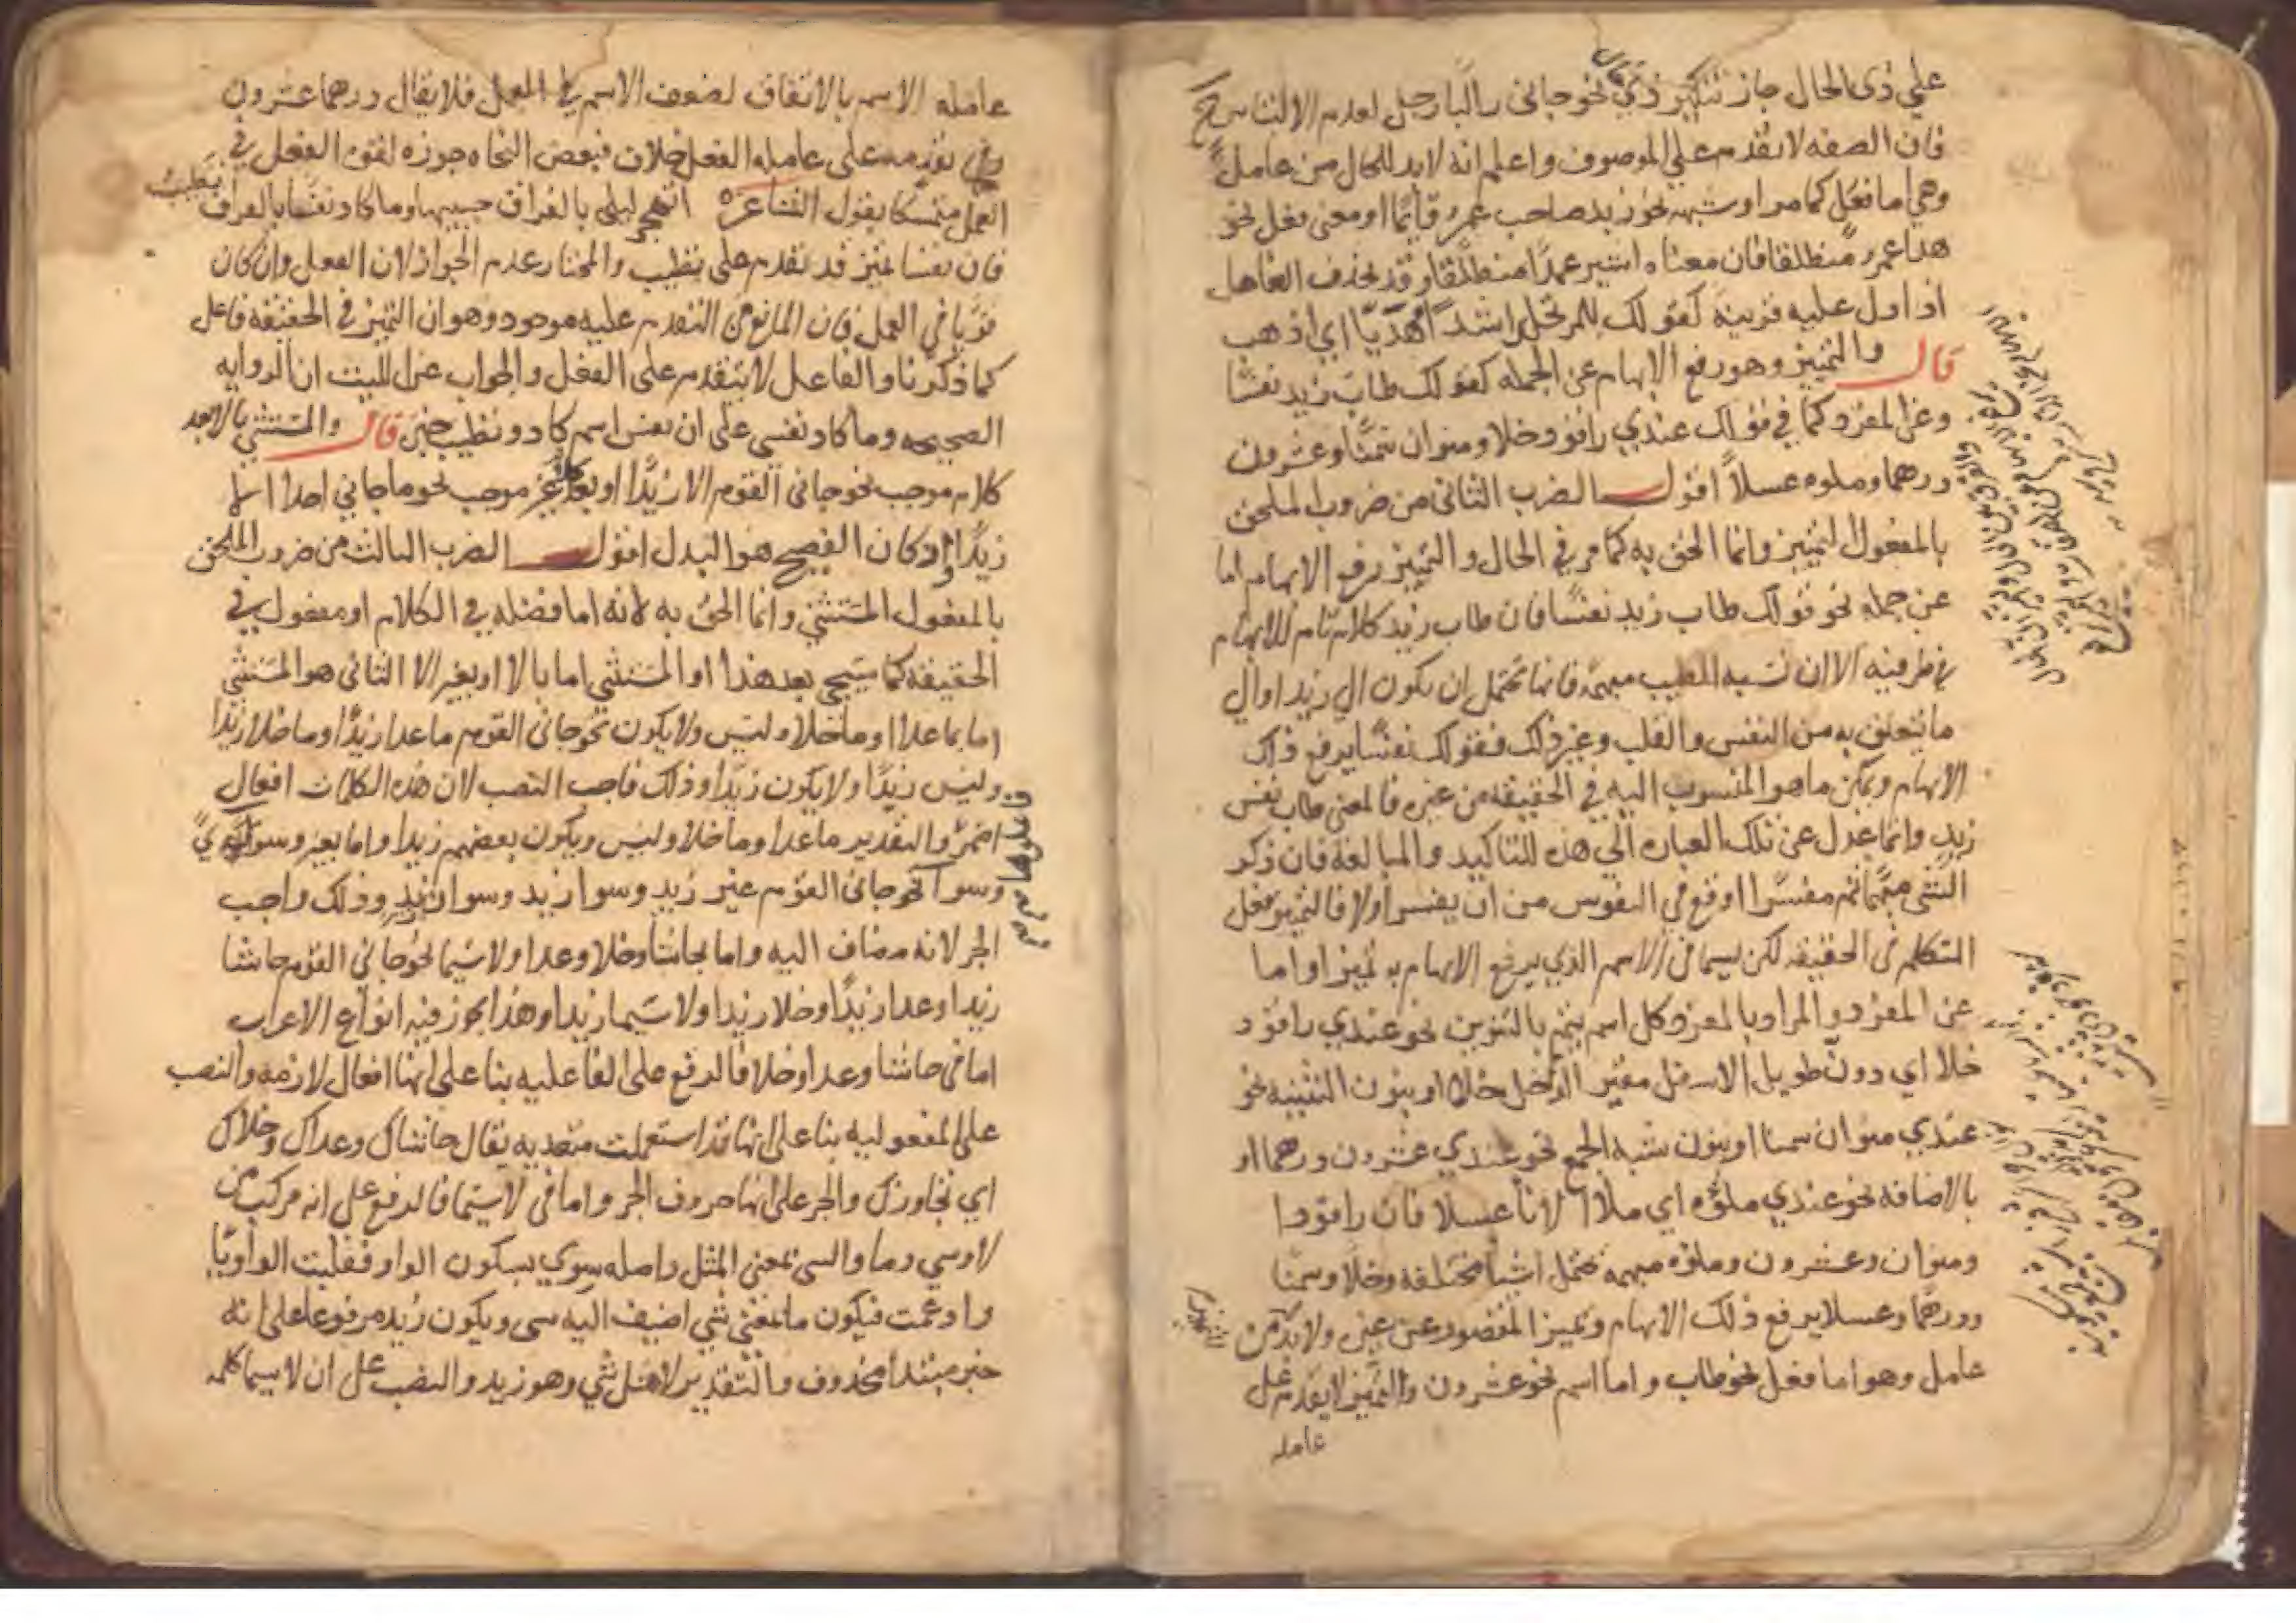 على ذى الحال جاز تنكير ذى نحو جانى راكبا رجل لعدم الالتباس ح
فان الصفه لا تقدم على الموصوف واعلم انه لابد للحال من عامل
وهي اما فعل كما مر او شبهه نحو زيد صاحب عمرو قائما او معنى فعل نحو
هدا عمرو منطلقا فان معناه اشير عمرا منطلقا وقد يحذف العامل
اذا دل عليه قرينه كقولك للمرتحل راشدا مهديا اي اذهب
قال والتمييز وهو رفع الابهام عن الجمله كقولك طاب زيد نفسا
وعن المفرد كما في قولك عندي راقود خلا ومنوان سمنا وعشرون
درهما وملوه عسلا اقول الضرب الثانى من ضروب الملحق
بالمفعول التمييز وانما الحق به كما مر في الحال والتمييز رفع الابهام اما
عن جمله نحو قولك طاب زيد نفسا فان طاب زيد كلام تام لا ابهام
في طرفيه الا ان نسبه الطيب مبهمه فانها تحتمل ان يكون الي زيد او الي
ما يتعلق به من النفس والقلب وغير ذلك فقولك نفسا يرفع ذلك
الابهام ويمكن ما هو المنسوب اليه في الحقيقه من غيره فالمعنى طاب نفس
زيد وانما عدل عن تلك العباره الي هذه للتاكيد والمبالغه فان ذكر
الشى مبهما ثم مفسرا اوقع في النفوس من ان يفسر اولا فالتمييز فعل
المتكلم فى الحقيقه لكن يسما فى الاسم الذي يرفع الابهام به تمييزا واما
عن المفرد والمراد بالمفرد كل اسم يتم بالتنوين نحو عندي راقود
خلا اي دون طويل الاسفل مقير الداخل خلا او بنون التثنيه نحو
عندي منوان سمنا او بنون شبه الجمع نحو عندي عشرون درهما او
بالاضافه نحو عندي ملؤه اي ملأ الاناء عسلا فان راقودا
ومنوان وعشرون وملؤه مبهمه تحتمل اشيا مختلفه وخلا وسمنا
ودرهما وعسلا يرفع ذلك الابهام وتمييز المقصود عن غيره ولابد من
عامل وهو اما فعل نحو طاب واما اسم نحو عشرون والتمييز لا يقدم على
عامله
عامله الاسم بالاتفاق لضعف الاسم في العمل فلا يقال درهما عشرون
وفى تقدمه على عامله الفعل خلاف فبعض النحاه جوزه لقوه الفعل في
العمل متمسكا بقول الشاعر اتهجر ليلى بالفراق حبيبها وما كاد نفسا بالفراق تطيب
فان نفسا تمييز قد تقدم على تطيب والمختار عدم الجواز لان الفعل وان كان
قويا في العمل فان المانع من التقدم عليه موجود وهو ان التمييز في الحقيقه فاعل
كما ذكرنا والفاعل لا يتقدم على الفعل والجواب عن البيت ان الروايه
الصحيحه وما كاد نفسي على ان نفس اسم كاد وتطيب خبره قال والمستثنى بالا بعد
كلام موجب نحو جانى القوم الا زيدا او بعد كلام غير موجب نحو ما جاني احد الا
زيدا وان كان الفصيح هو البدل اقول الضرب الثالث من ضروب الملحق
بالمفعول المستثنى وانما الحق به لانه اما فضله في الكلام او مفعول في
الحقيقه كما سيجي بعد هذا او المستثنى اما بالا او بغير الا الثانى هو المستثنى
اما بما عدا او ما خلا وليس ولا يكون نحو جانى القوم ما عدا زيدا وما خلا زيدا
وليس زيدا ولا يكون زيدا وذلك واجب النصب لان هذه الكلمات افعال
اضمر والتقدير ما عدا وما خلا وليس ويكون بعضهم زيدا واما بغير وسوا وسوي
وسوآ نحو جانى القوم غير زيد وسوا زيد وسوا زيد وذلك واجب
الجر لانه مضاف اليه واما بحاشا وخلا وعدا ولاسيما نحو جاني القوم حاشا
زيدا وعدا زيدا وخلا زيدا ولا سيما زيدا وهذا يجوز فيه انواع الاعراب
اما فى حاشا وعدا وخلا فالرفع على الفاعليه بنا على انها افعال لازمه والنصب
على المفعوليه بنا على انها قد استعملت متعديه يقال حاشاك وعداك وخلاك
اي تجاوزك والجر على انها حروف الجر واما فى لاسيما فالرفع على انه مركب من
لا وسي وما والسى بمعنى المثل واصله سوي بسكون الواو فقلبت الواو يا
وادغمت فيكون ما بمعنى شي اضيف اليه سى ويكون زيد مرفوعا على انه
خبر مبتدا محذوف والتقدير لا مثل شي وهو زيد والنصب على ان لاسيما كلمه